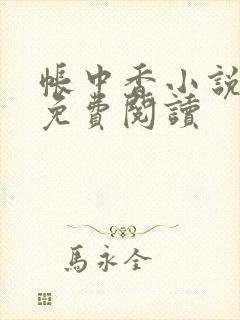 帳中香小說
免費閱讀
馬永全